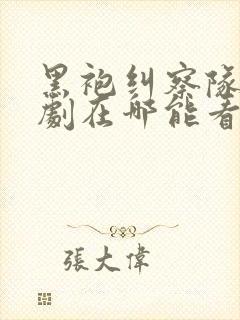 黑袍纠察隊
劇在哪能看
張大偉